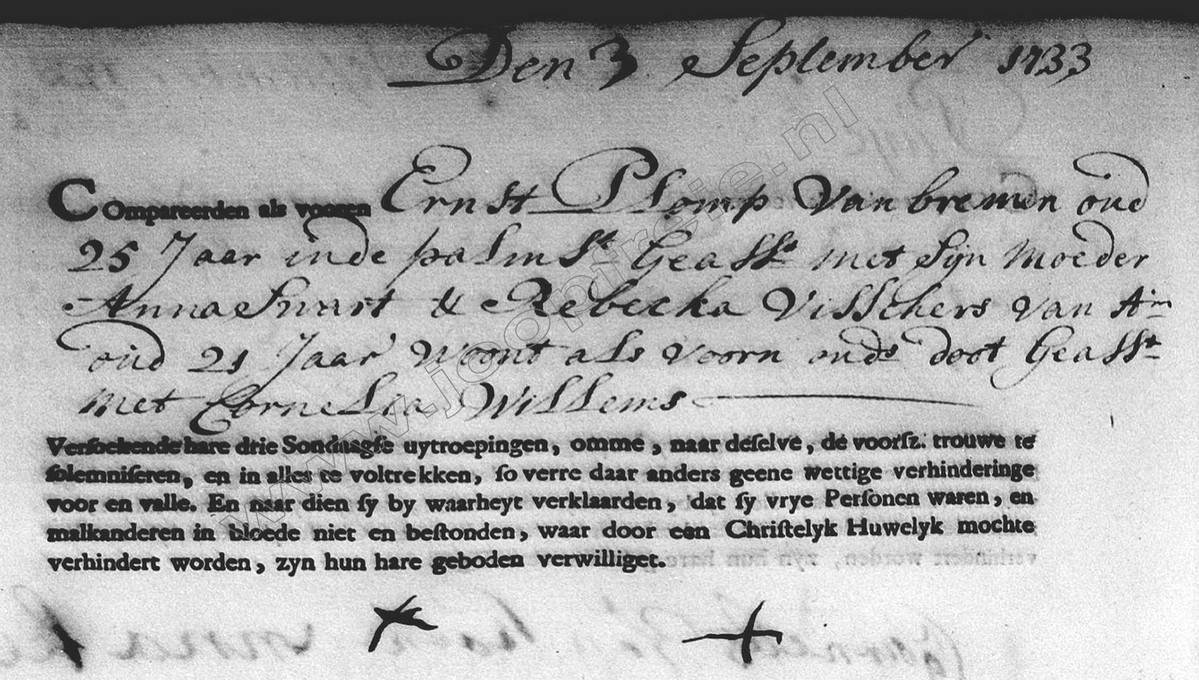 Den 3 September 1733
COmpareerden als vooren Ernst Plomp van bremen oud
25 Jaar inde palm St Geasst met sijn moeder
Anna Swart & Rebecka Visschers van Am
oud 21 Jaar woont als voorn ouds doot Geasst
met Cornelia Willems
Versoekende hare drie Sondaagse uytroepingen, omme, naar deselve, de voorsz. trouwe te
solemniseren, en in alles te voltrekken, so verre daar anders geene wettige verhinderinge
voor en valle. En naar dien sy by waarheyt verklaarden, dat sy vrye Personen waren, en
malkanderen in bloede niet en bestonden, waar door een Christelyk Huwelyk mochte
verhindert worden, zyn hun hare geboden verwilliget.